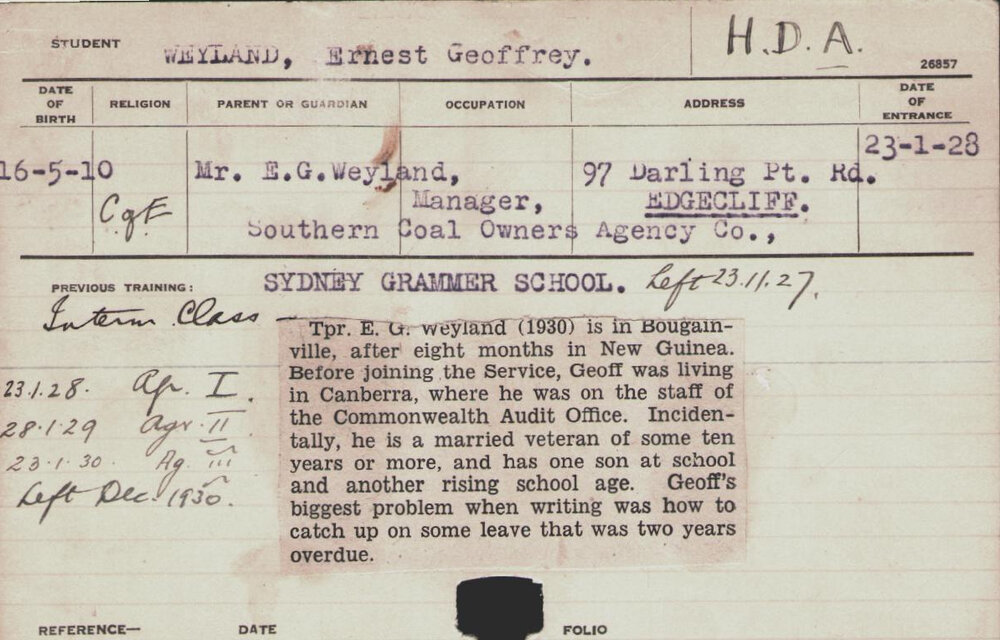 STUDENT WEYLAND, Ernest Geoffrey. H.D.A. 26857
DATE OF BIRTH RELIGION PARENT OR GUARDIAN OCCUPATION ADDRESS DATE OF ENTRANCE
23-1-28
16-5-10 Mr. E.G.Weyland, 97 Darling Pt. Rd.
C of E Manager, EDGECLIFF.
Southern Coal Owners Agency Co.,
PREVIOUS TRAINING: SYDNEY GRAMMER SCHOOL. Left 23.11.27.
Interm Class —
Tpr. E. G. Weyland (1930) is in Bougain-
ville, after eight months in New Guinea.
Before joining the Service, Geoff was living
in Canberra, where he was on the staff of
the Commonwealth Audit Office. Inciden-
tally, he is a married veteran of some ten
years or more, and has one son at school
and another rising school age. Geoff's
biggest problem when writing was how to
catch up on some leave that was two years
overdue.
23.1.28. Agr. I.
28.1.29 Agr. II
23.1.30. Ag. III
Left Dec. 1930.
REFERENCE— DATE FOLIO